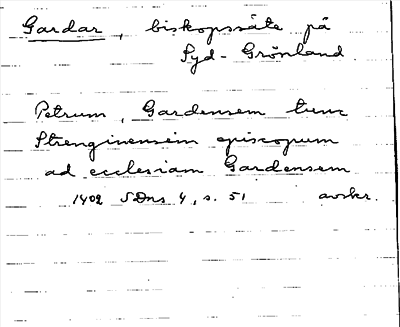 Gardar, biskopssäte på
Syd-Grönland
Petrum, Gardensem tunc
Strenginensem episcopum
ad ecclesiam Gardensem
1402 SDns 4, s. 51 avskr.